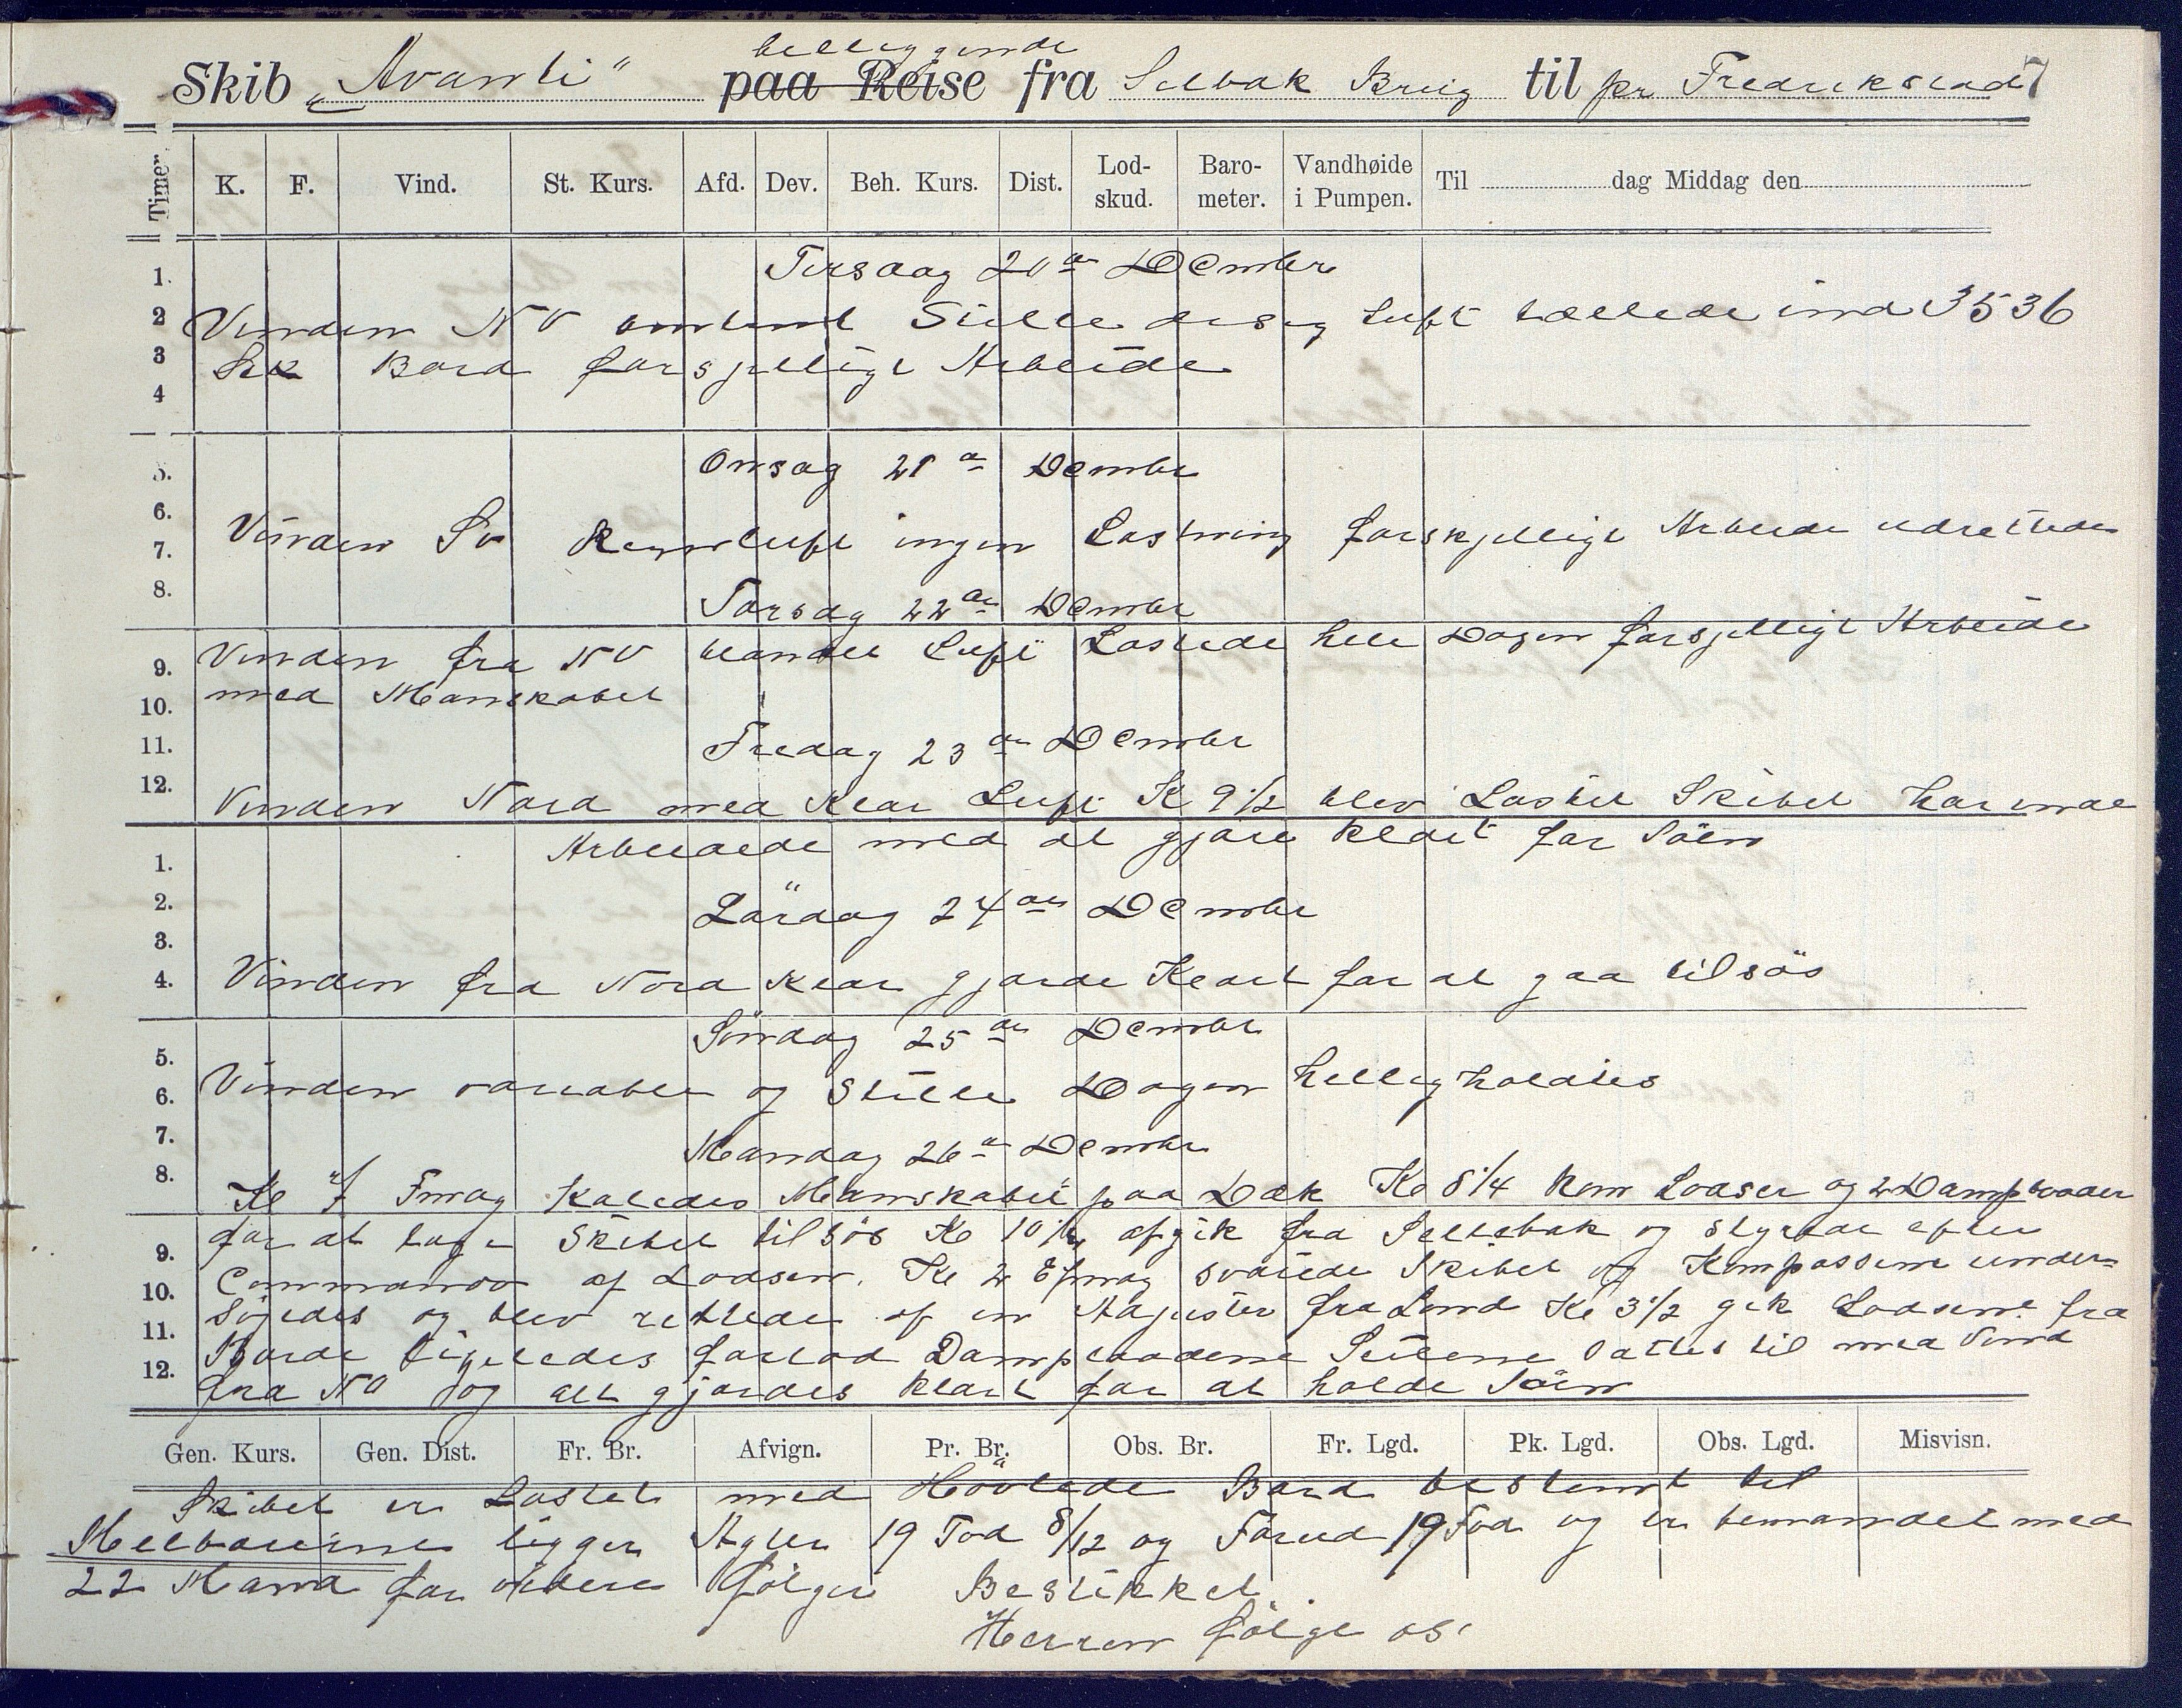 belliggende
Skib „Avanti" paa Reise fra Selbak Brug til pr Fredrikstad 7
Timer. K. F. Vind. St. Kurs. Afd. Dev. Beh. Kurs. Dist. Lod-skud. Baro-meter. Vandhøide i Pumpen. Til dag Middag den
1. Tirsdag 20de Dembr
2 Vinden NV omtrent Stille disig Luft tællede ind 3536
3 Stk Bord forsjellige Arbeide
4
5. Onsag 21de Dembr
6.
7. Vinden Sv Regnluft ingen Lastning forskjellige Arbeide udrettedes
8. Torsdag 22de Dembr
9. Vinden fra NV blandet Luft Lastede hele Dagen forsjellige Arbeide
10. med Manskabet
11. Fredag 23de Dembr
12. Vinden Nord med Klar Luft Kl 9 1/2 blev Lastet Skibet har inde
1. Arbeidede med at gjøre klart for Söen
2. Lördag 24de Dembr
3.
4. Vinden fra Nord klar gjorde Klart for at gaa tilsös
Söndag 25de Dembr
5.
6. Vinden variabel og Stille Dagen helligholdtes
7. Mandag 26de Dembr
8. Kl 7 Fmdag Kaledes Manskabet paa Dæk Kl 8 1/4 kom Lodser og 2 Dampbaader
9. for at tage Skibet tilsös Kl 10 afgik fra Sellebak og styrede efter
10. Commando af Lodsen. Kl 2 Efmdag svaiede Skibet og Kompassene under=
11. sögedes og blev rettede af en Adjuster fra Land Kl 3 1/2 gik Lodsene fra
12. Borde ligeledes forlod Dampbaadene Seilene Sattes til med Vind
fra NO og alt gjordes klart for at holde Söen
Gen. Kurs. Gen. Dist. Fr. Br. Afvign. Pr. Br. Obs. Br. Fr. Lgd. Pk. Lgd. Obs. Lgd. Misvisn.
Skibet er Lastet med Hövlede Bord bestemt til
Melbourne ligger Agter 19 Fod 8/12 og Forud 19 Fod og er bemandet med
22 Mand for videre fölger Bestikket
Herren fölge os.